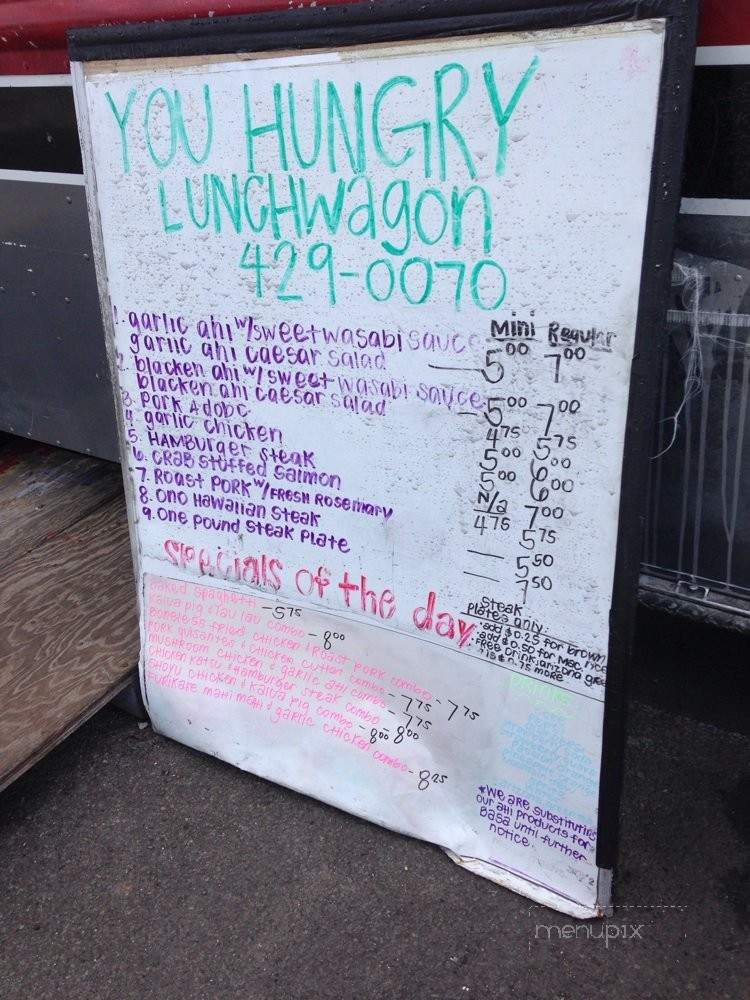 YOU HUNGRY
LUNCHwagon
429-0070
Mini Regular
1. garlic ahi w/sweet wasabi sauce
garlic ahi caesar salad — 5⁰⁰ 7⁰⁰
2. blacken ahi w/ sweet wasabi sauce
blacken ahi caesar salad — 5⁰⁰ 7⁰⁰
3. PORK Adobo 4⁷⁵ 5⁷⁵
4. garlic chicken 5⁰⁰ 6⁰⁰
5. HAMBURGER STEAK 5⁰⁰ 6⁰⁰
6. CRAB STUFFED SALMON N/a 7⁰⁰
7. ROAST PORK w/FRESH ROSEMARY 4⁷⁵ 5⁷⁵
8. ONO HAWAIIAN STEAK — 5⁵⁰
9. ONE POUND STEAK PLATE — 7⁵⁰
Specials of the day
Baked spaghetti - 5⁷⁵
Kalua pig & lau lau combo - 8⁰⁰
Boneless fried chicken & Roast PORK combo - 7⁷⁵
PORK guisantes & chicken cutlet combo - 7⁷⁵
MUSHROOM chicken & garlic ahi combo - 7⁷⁵
chicken katsu & Hamburger steak combo - 8⁰⁰
SHOYU chicken & kalua pig combo - 8⁰⁰
FURIKAKE mahi mahi & garlic chicken combo - 8²⁵
STEAK
Plates only
• add $0.25 for brown
• add $0.50 for mac
• FREE Drink: arizona
*We are substituting
our ahi products for
Basa until further
notice
menupix